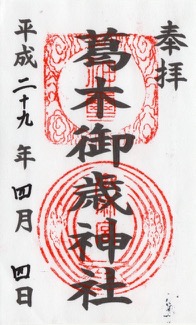 奉拝
葛木御歳神社
平成二十九年四月四日